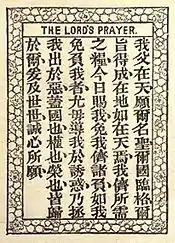 THE LORD'S PRAYER.
我父在天願爾名聖爾國臨格爾
旨得成在地如在天焉我儕所需
之糧今日賜我免我儕諸負如我
免負我者尤毋導我於誘惑乃拯
我出於惡蓋國也權也榮也皆歸
於爾爰及世世誠心所願